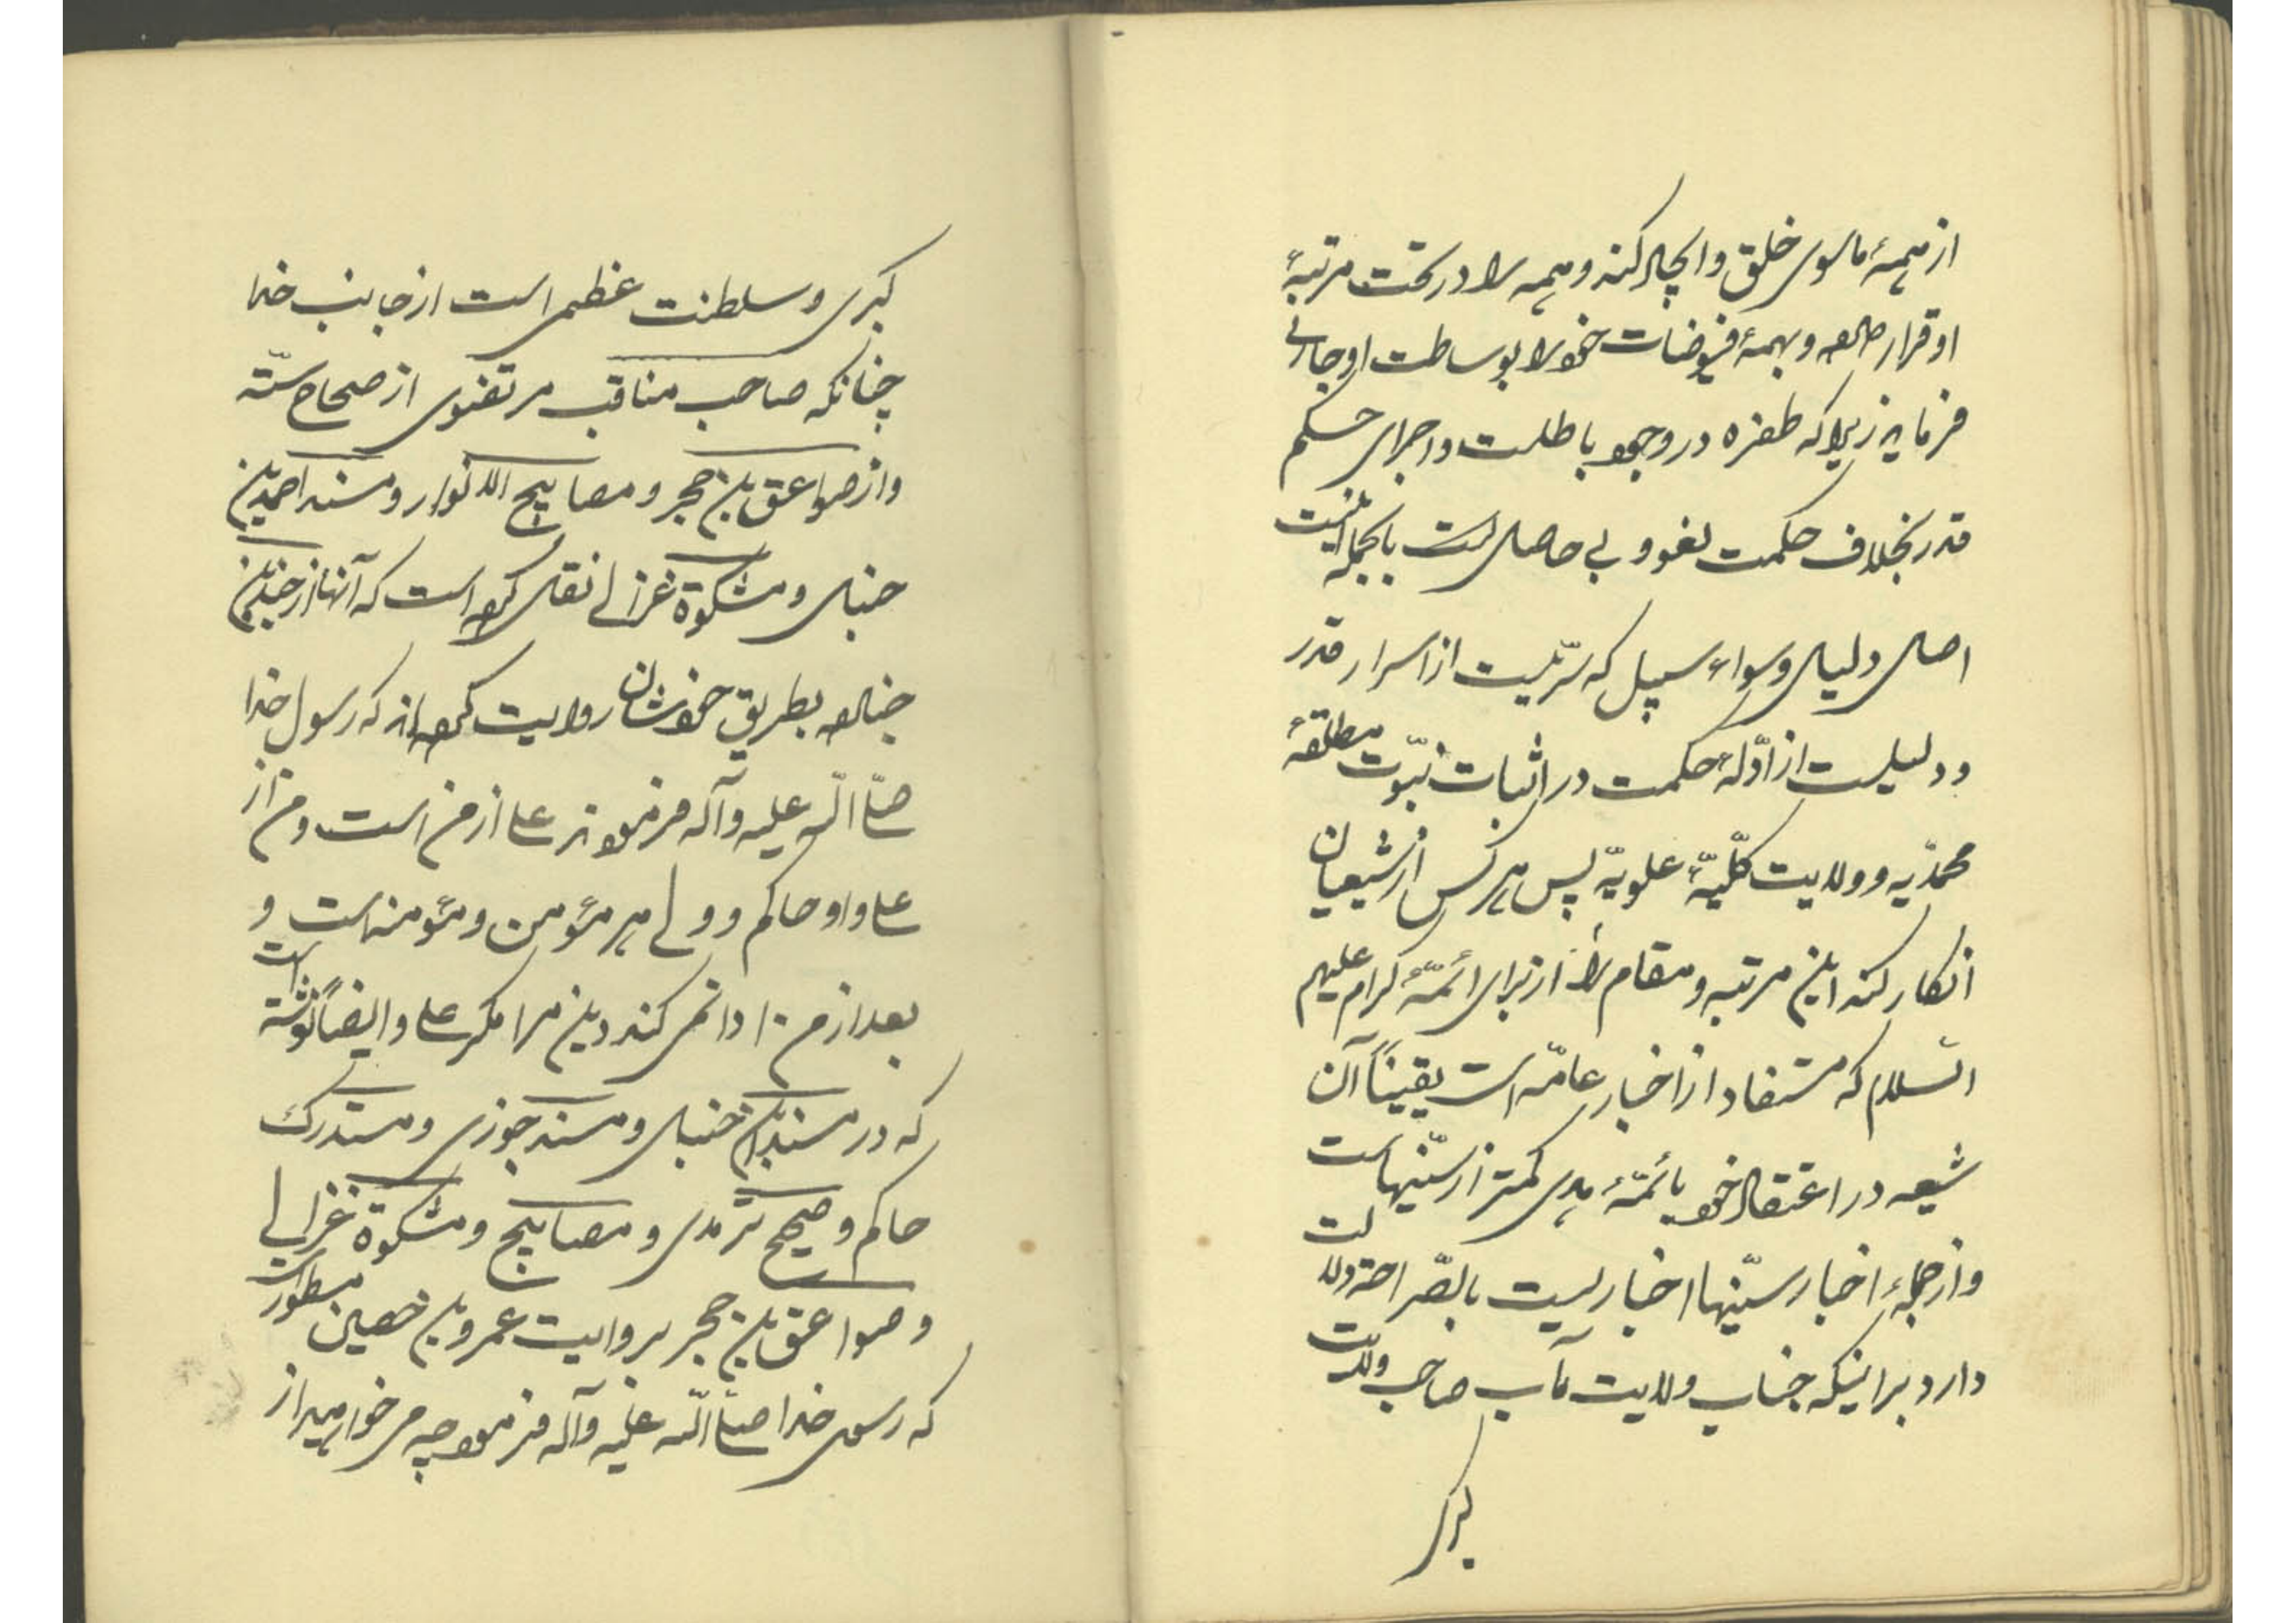 از همهٔ ماسوی خلق و ایجاد کند و همه را در تحت مرتبهٔ
او قرار داده و بهمهٔ فیوضات خود را بوساطت او جاری
فرماید زیرا که طفره در وجود باطلست و اجرای حکم
قدر بخلاف حکمت لغو و بی حاصل است بالجمله اینست
اصل دلیل و سواء سبیل که سرّیست از اسرار قدر
و دلیلیست از ادّلهٔ حکمت در اثبات نبوّت مطلقهٔ
محمدّیه و ولایت کلّیهٔ علویّه پس هر کس از شیعیان
انکار کند این مرتبه و مقام را از برای ائمّهٔ کرام علیهم
السّلام که مستفاد از اخبار عامّه است یقیناً آن
شیعه در اعتقاد خود بائمّهٔ هدی کمتر از سنّیهاست
و از جملهٔ اخبار سنّیها اخباریست بالصّراحه دلالت
دارد بر اینکه جناب ولایت مآب صاحب ولایت
کبری
کبری و سلطنت عظمی است از جانب خدا
چنانکه صاحب مناقب مرتضوی از صحاح ستّه
و از صواعق بن حجر و مصابیح الانوار و مسند احمد بن
حنبل و مشکوة غزالی نقل کرده است که آنها از
جناده بطریق خودشان روایت کرده‌اند که رسول خدا
صلّی اللّه علیه وآله فرمودند علی از من است و من از
علی و او حاکم و ولی هر مؤمن و مؤمنه است و
بعد از من ادا نمی کند دین مرا مگر علی و ایضاً نوشته است
که در مسند بن حنبل و مسند جوزی و مستدرک
حاکم و صحیح ترمدی و مصابیح و مشکوة غزالی
و صواعق بن حجر بروایت عمرو بن حصین مسطور است
که رسول خدا صلّی اللّه علیه وآله فرمود چه می خواهید از